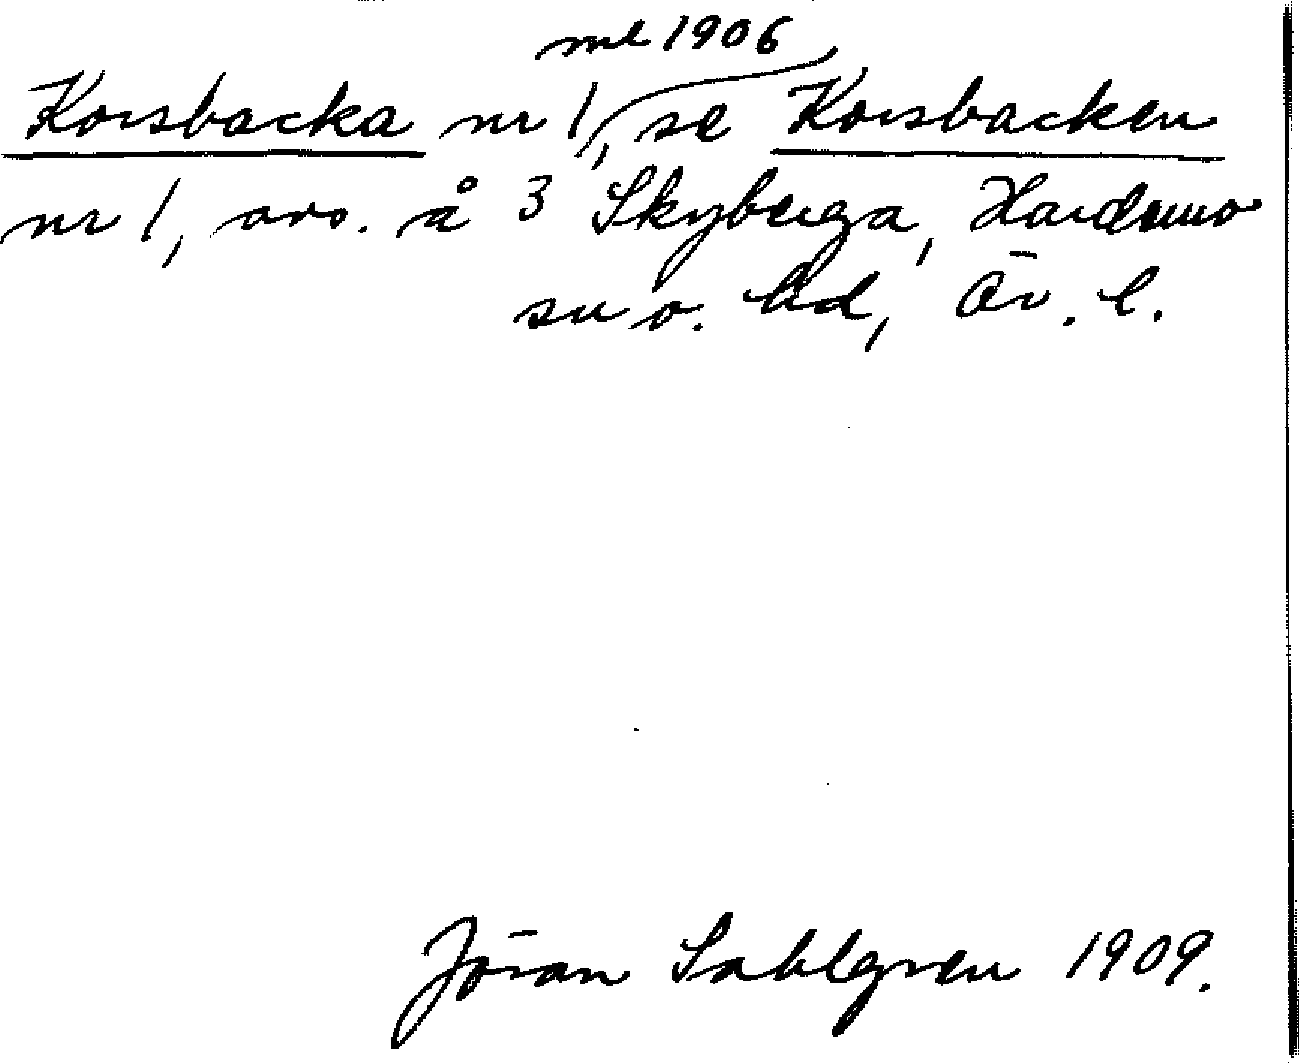 ml 1906
Korsbacka nr 1, se Korsbacken
nr 1, avs. å 3 Skyberga, Hardemo
sn o. hd, Ör. l.
Jöran Sahlgren 1909.